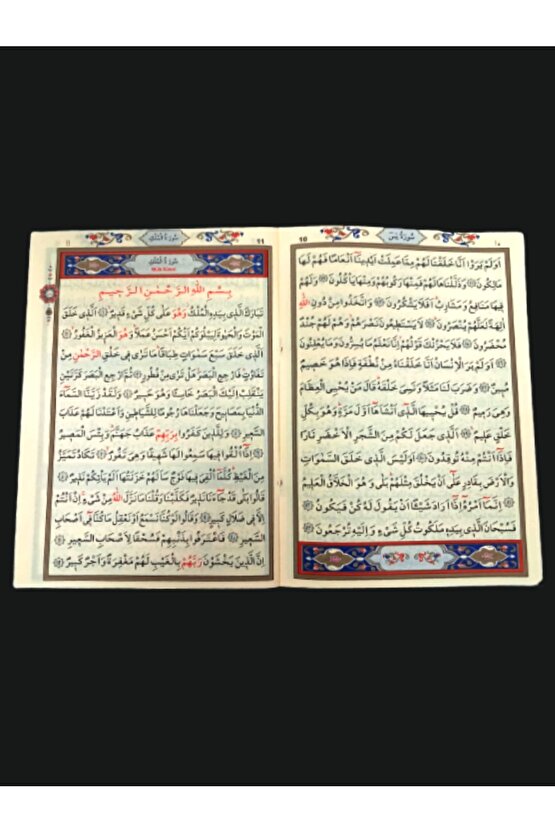 سُورَةُ يٰسٓ 10
اَوَلَمْ يَرَوْا اَنَّا خَلَقْنَا لَهُمْ مِمَّا عَمِلَتْ اَيْدِينَٓا اَنْعَامًا فَهُمْ لَهَا
مَالِكُونَ ۝ وَذَلَّلْنَاهَا لَهُمْ فَمِنْهَا رَكُوبُهُمْ وَمِنْهَا يَأْكُلُونَ ۝ وَلَهُمْ
فِيهَا مَنَافِعُ وَمَشَارِبُ اَفَلَا يَشْكُرُونَ ۝ وَاتَّخَذُوا مِنْ دُونِ اللّٰهِ
اٰلِهَةً لَعَلَّهُمْ يُنْصَرُونَ ۝ لَا يَسْتَطِيعُونَ نَصْرَهُمْ وَهُمْ لَهُمْ جُنْدٌ
مُحْضَرُونَ ۝ فَلَا يَحْزُنْكَ قَوْلُهُمْ اِنَّا نَعْلَمُ مَا يُسِرُّونَ وَمَا يُعْلِنُونَ
۝ اَوَلَمْ يَرَ الْاِنْسَانُ اَنَّا خَلَقْنَاهُ مِنْ نُطْفَةٍ فَاِذَا هُوَ خَصِيمٌ
مُبِينٌ ۝ وَضَرَبَ لَنَا مَثَلًا وَنَسِيَ خَلْقَهُ قَالَ مَنْ يُحْيِي الْعِظَامَ
وَهِيَ رَمِيمٌ ۝ قُلْ يُحْيِيهَا الَّذِٓي اَنْشَاَهَٓا اَوَّلَ مَرَّةٍ وَهُوَ بِكُلِّ
خَلْقٍ عَلِيمٌ ۝ اَلَّذِي جَعَلَ لَكُمْ مِنَ الشَّجَرِ الْاَخْضَرِ نَارًا
فَاِذَٓا اَنْتُمْ مِنْهُ تُوقِدُونَ ۝ اَوَلَيْسَ الَّذِي خَلَقَ السَّمٰوَاتِ
وَالْاَرْضَ بِقَادِرٍ عَلٰٓى اَنْ يَخْلُقَ مِثْلَهُمْ بَلٰى وَهُوَ الْخَلَّاقُ الْعَلِيمُ
۝ اِنَّمَٓا اَمْرُهُٓ اِذَٓا اَرَادَ شَيْـًٔا اَنْ يَقُولَ لَهُ كُنْ فَيَكُونُ ۝
فَسُبْحَانَ الَّذِي بِيَدِهِ مَلَكُوتُ كُلِّ شَيْءٍ وَاِلَيْهِ تُرْجَعُونَ ۝
11 سُورَةُ الْمُلْكِ
سُورَةُ الْمُلْكِ
بِسْمِ اللّٰهِ الرَّحْمٰنِ الرَّحِيمِ
تَبَارَكَ الَّذِي بِيَدِهِ الْمُلْكُ وَهُوَ عَلٰى كُلِّ شَيْءٍ قَدِيرٌ ۝ اَلَّذِي خَلَقَ
الْمَوْتَ وَالْحَيٰوةَ لِيَبْلُوَكُمْ اَيُّكُمْ اَحْسَنُ عَمَلًا وَهُوَ الْعَزِيزُ الْغَفُورُ ۝
اَلَّذِي خَلَقَ سَبْعَ سَمٰوَاتٍ طِبَاقًا مَا تَرٰى فِي خَلْقِ الرَّحْمٰنِ مِنْ
تَفَاوُتٍ فَارْجِعِ الْبَصَرَ هَلْ تَرٰى مِنْ فُطُورٍ ۝ ثُمَّ ارْجِعِ الْبَصَرَ كَرَّتَيْنِ
يَنْقَلِبْ اِلَيْكَ الْبَصَرُ خَاسِئًا وَهُوَ حَسِيرٌ ۝ وَلَقَدْ زَيَّنَّا السَّمَٓاءَ
الدُّنْيَا بِمَصَابِيحَ وَجَعَلْنَاهَا رُجُومًا لِلشَّيَاطِينِ وَاَعْتَدْنَا لَهُمْ عَذَابَ
السَّعِيرِ ۝ وَلِلَّذِينَ كَفَرُوا بِرَبِّهِمْ عَذَابُ جَهَنَّمَ وَبِئْسَ الْمَصِيرُ
۝ اِذَٓا اُلْقُوا فِيهَا سَمِعُوا لَهَا شَهِيقًا وَهِيَ تَفُورُ ۝ تَكَادُ تَمَيَّزُ
مِنَ الْغَيْظِ كُلَّمَٓا اُلْقِيَ فِيهَا فَوْجٌ سَاَلَهُمْ خَزَنَتُهَٓا اَلَمْ يَأْتِكُمْ نَذِيرٌ ۝
قَالُوا بَلٰى قَدْ جَٓاءَنَا نَذِيرٌ فَكَذَّبْنَا وَقُلْنَا مَا نَزَّلَ اللّٰهُ مِنْ شَيْءٍ اِنْ اَنْتُمْ
اِلَّا فِي ضَلَالٍ كَبِيرٍ ۝ وَقَالُوا لَوْ كُنَّا نَسْمَعُ اَوْ نَعْقِلُ مَا كُنَّا فِٓي اَصْحَابِ
السَّعِيرِ ۝ فَاعْتَرَفُوا بِذَنْبِهِمْ فَسُحْقًا لِاَصْحَابِ السَّعِيرِ ۝
اِنَّ الَّذِينَ يَخْشَوْنَ رَبَّهُمْ بِالْغَيْبِ لَهُمْ مَغْفِرَةٌ وَاَجْرٌ كَبِيرٌ ۝